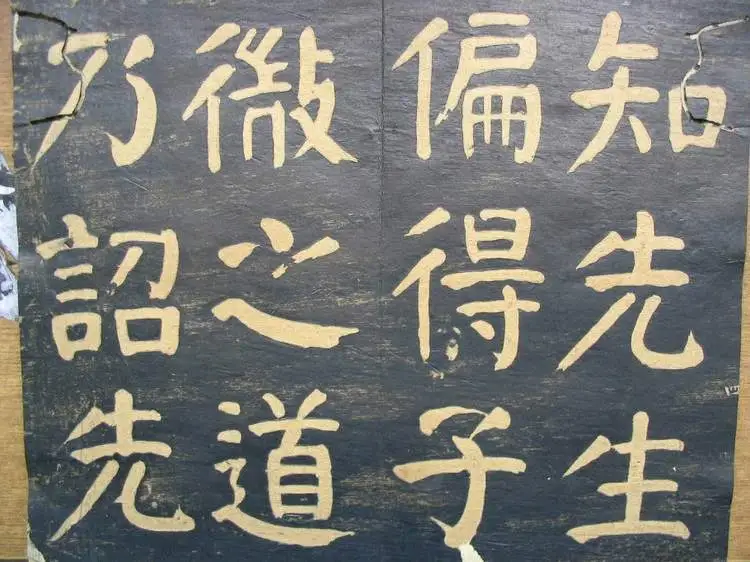 知先生
偏得子
微之道
乃詔先